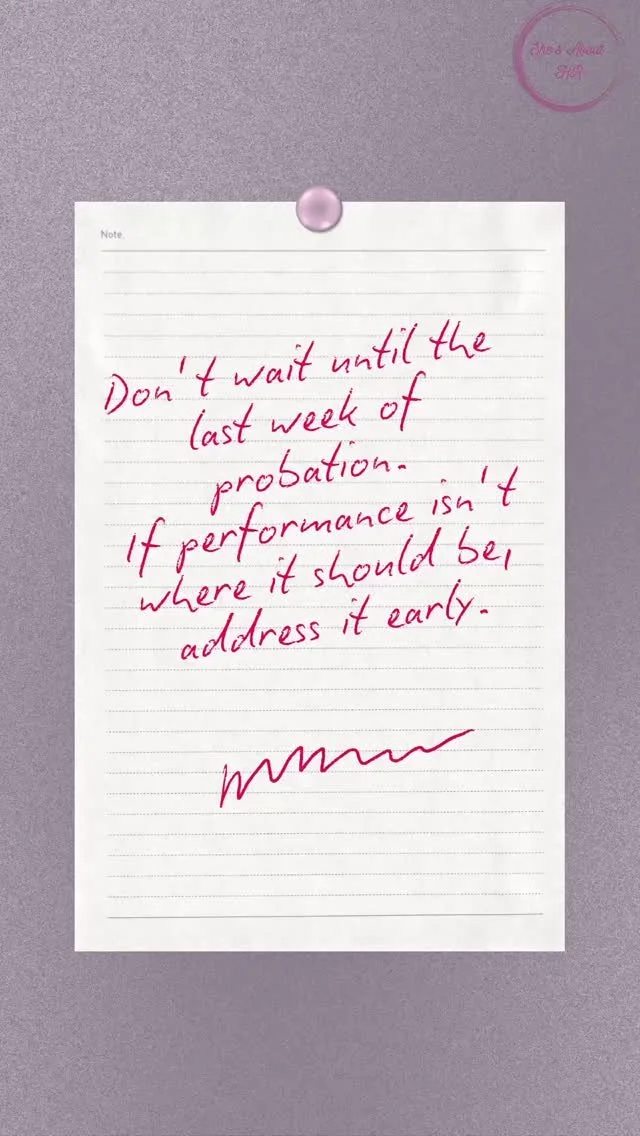 She's About
HR
Note.
Don't wait until the
last week of
probation.
If performance isn't
where it should be,
address it early.